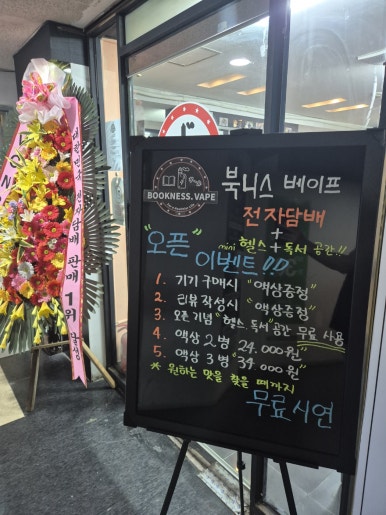 대한민국 전자담배 판매 1위 달성
BOOKNESS.VAPE
북니스 베이프
전자담배
+
mini 헬스 + 독서 공간!!
"오픈" 이벤트!!
1. 기기 구매시 "액상증정"
2. 리뷰 작성시 "액상증정"
3. 오픈 기념 "헬스, 독서" 공간 무료 사용
4. 액상 2병 "24.000원"
5. 액상 3병 "34.000원"
* 원하는 맛을 찾을 때까지
무료시연